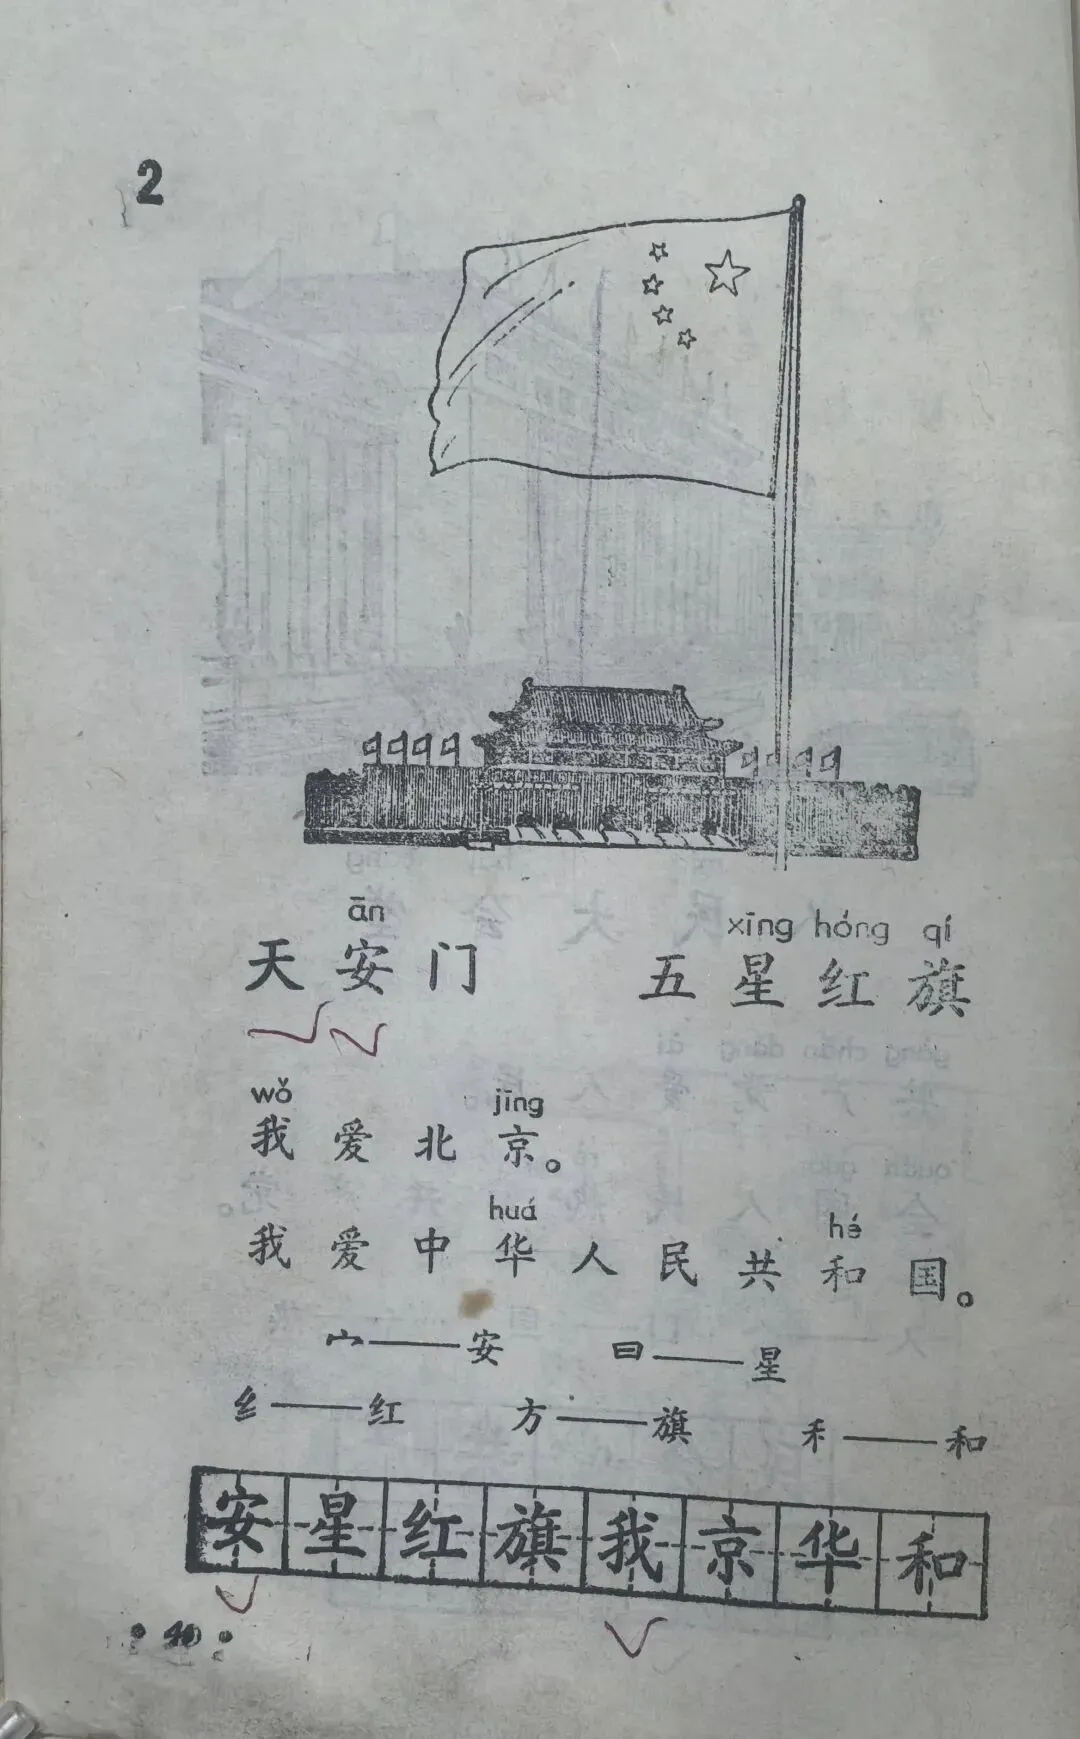 2
ān xīng hóng qí
天安门 五星红旗
wǒ jīng
我爱北京。
huá hé
我爱中华人民共和国。
宀——安 日——星
纟——红 方——旗 禾——和
安星红旗我京华和
· 40 ·